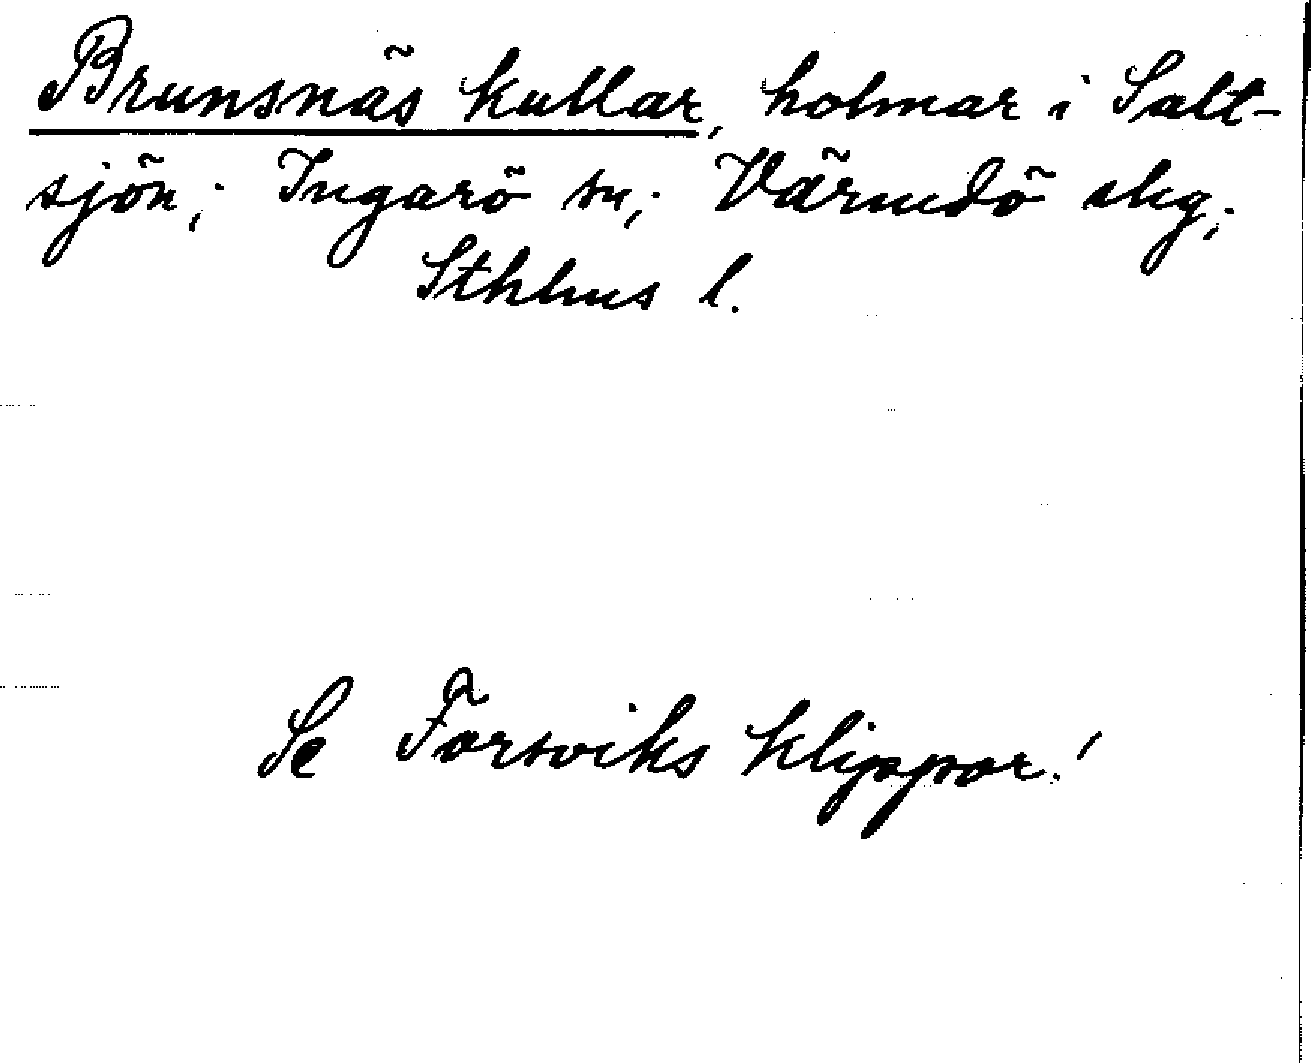 Brunsnäs kullar, holmar i Salt-
sjön; Ingarö sn; Värmdö skg;
Sthlms l.
Se Forsviks klippor!